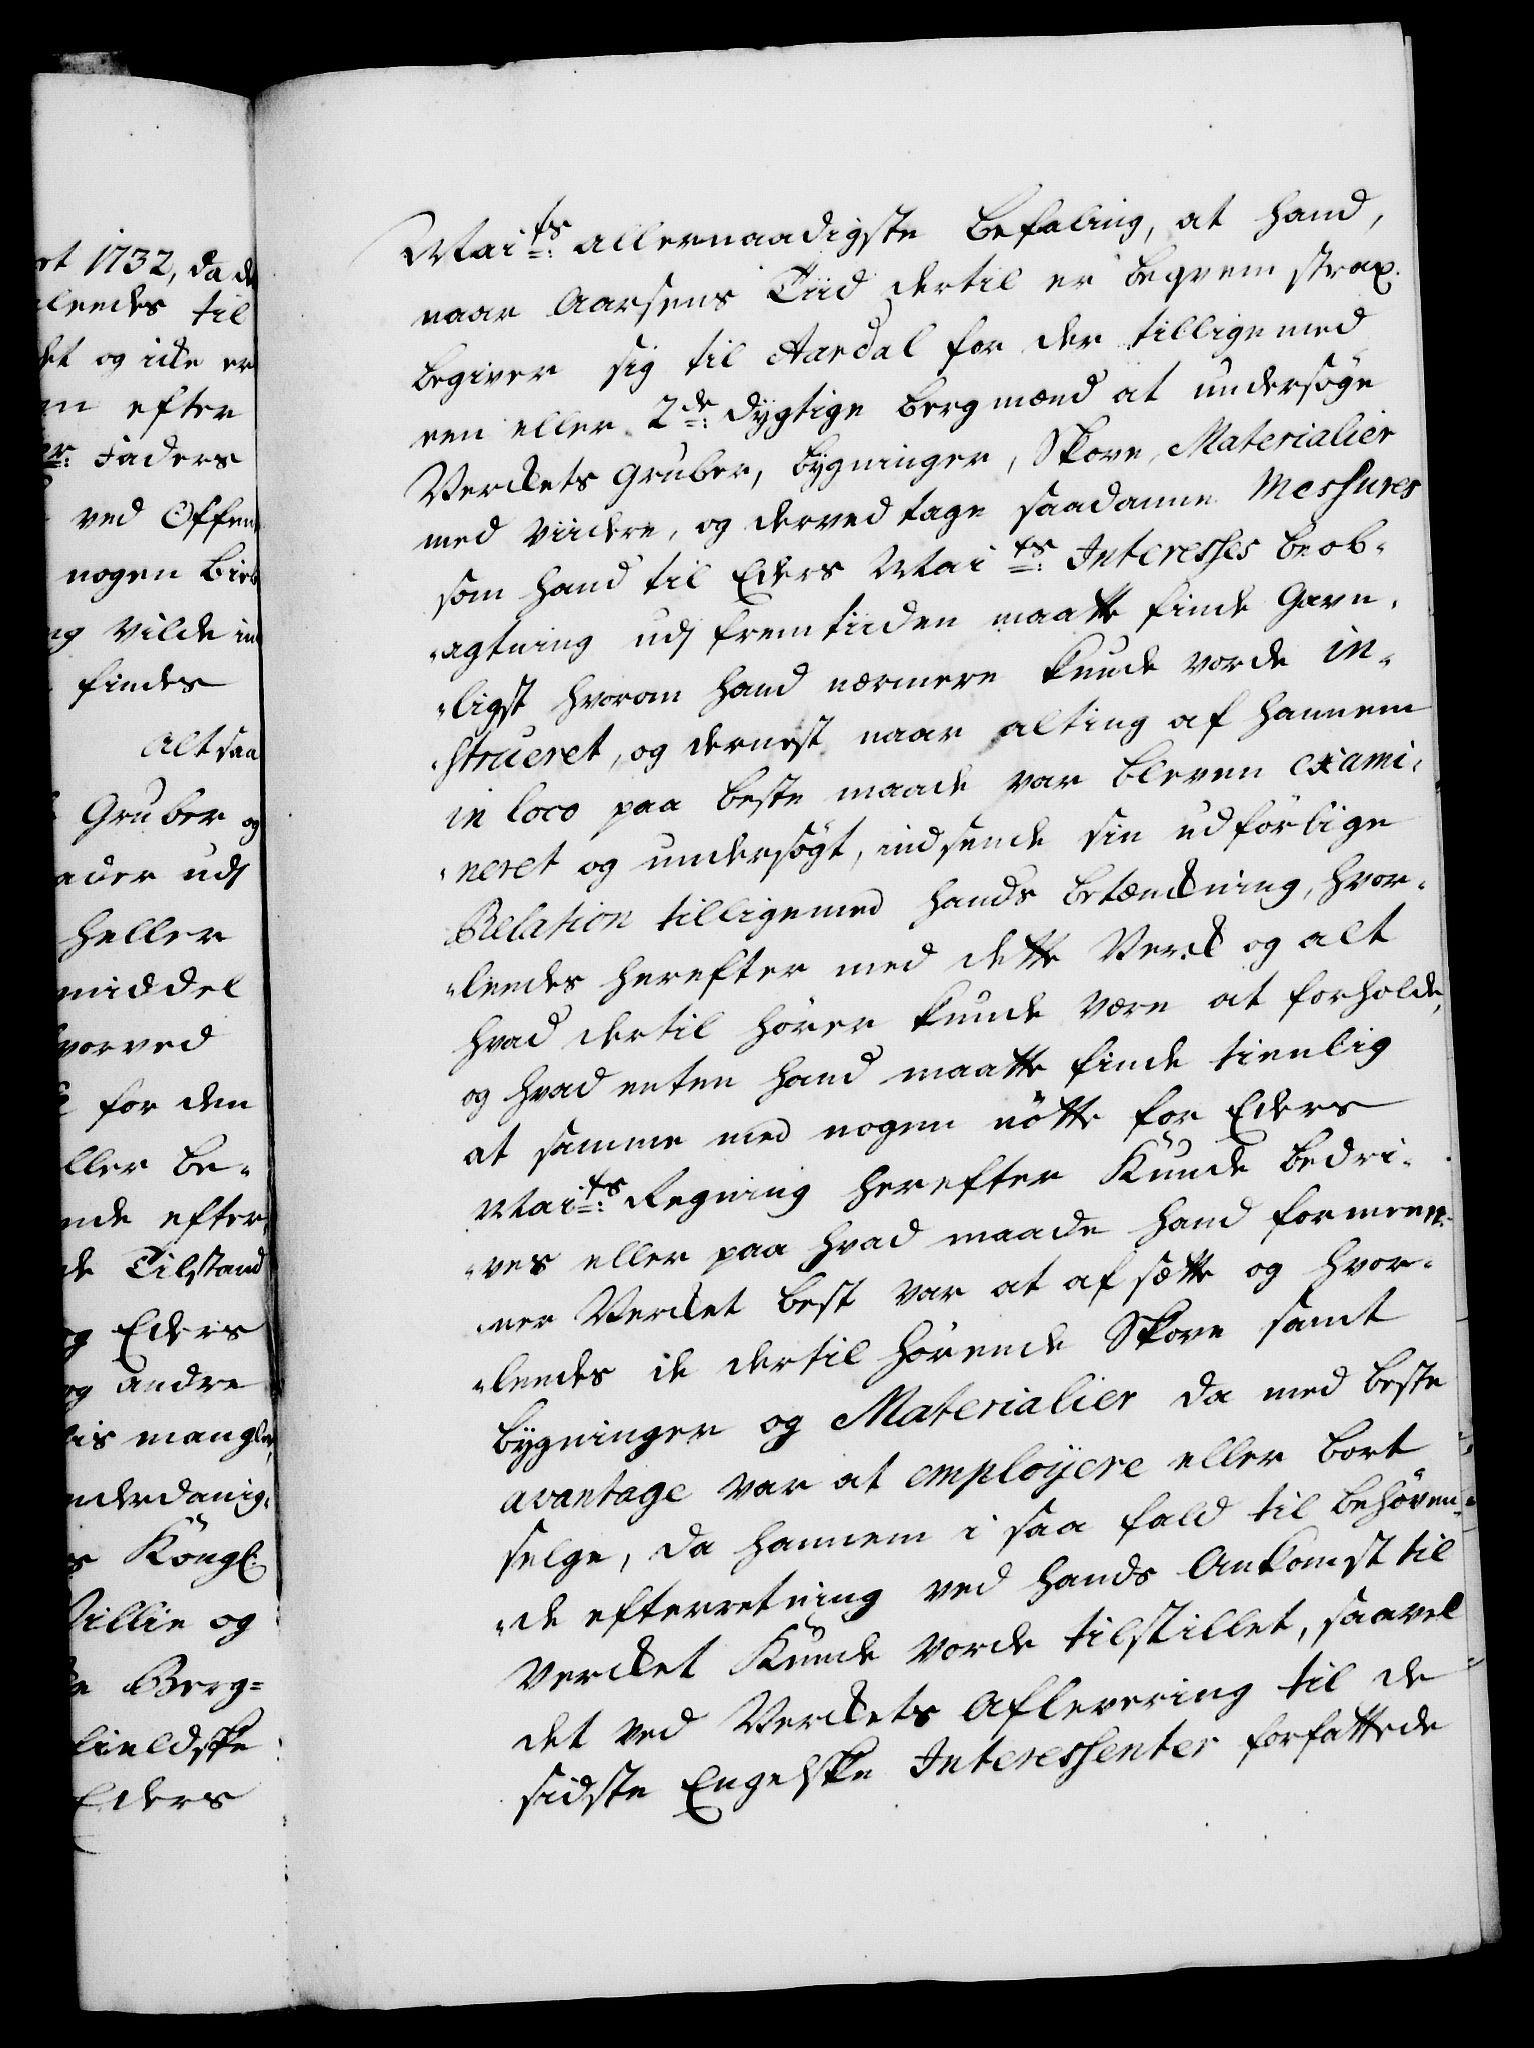 rt 1732, da de
leedes til
det og icke er
en efter
er: Faders
ved Offen
nogen Birk
ng Vilde in
findes
alt saa
Gruber og
ader udj
heller
middel
hvorved
for den
ller be-
nde efter
de Tilstand
og Eders
og andre
lis mangler,
nderdanig-
s Köngl:
Villie og
e Berg-
fieldske
Eders
Maits: allernaadigste Befaling, at hand,
naar Aarsens Tiid dertil er beqvem strax
begiver sig til Aardal for der tilligemed
een eller 2de: dygtige Bergmænd at undersöge
Verckets Gruber, Bygninger, Skove, Materialier
med Viidere, og derved tage saadanne Messures
som hand til Eders Maits: Interesses beob-
agtning udj fremtiiden maatte finde Gavn-
ligst hvorom hand nærmere kunde vorde in-
strueret, og dernest naar alting af hannem
in loco paa beste maade var bleven exami-
neret og undersögt, indsende sin udförlige
Relation tilligemed hands betænckning, hvor-
leedes herefter med dette Verck og alt
hvad dertil hörer kunde være at forholde,
og hvad enten hand maatte finde tienlig
at samme med nogen nötte for Eders
Maits: Regning herefter Kunde bedri-
ves eller paa hvad maade hand formeen-
ner Vercket best var at afsætte og hvor-
leedes de dertil hörende Skove samt
bygninger og Materialier da med beste
avantage var at employere eller bort
selge, da hannem i saa fald til behöven-
de efterretning ved hands Ankomst til
Vercket Kunde vorde tilstillet, saavel
det ved Verckets Aflevering til de
sidste Engelske Interessenter forfattede